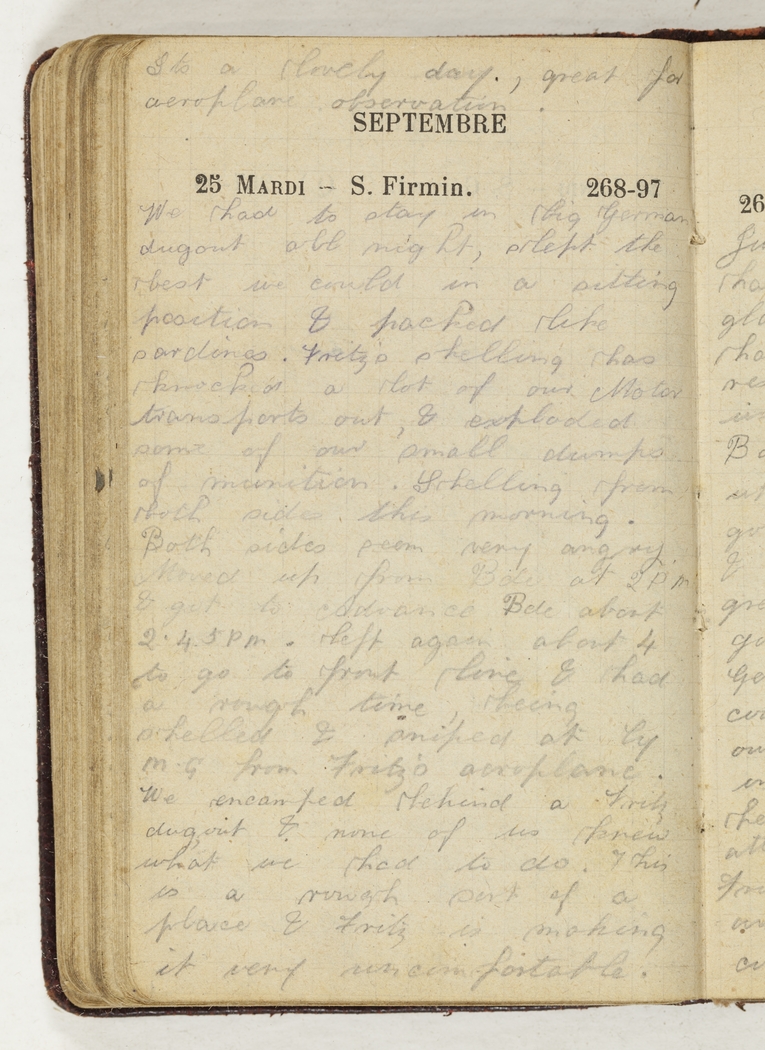 Its a lovely day., great for
aeroplane observation.
SEPTEMBRE
25 MARDI – S. Firmin. 268-97
We had to stay in big German
dugout all night, slept the
best we could in a sitting
position & packed like
sardines. Fritz's shelling has
knocked a lot of our Motor
transports out, & exploded
some of our small dumps
of munition. Shelling from
both sides this morning.
Both sides seem very angry.
Moved up from Bde at 2 P m
& got to advance Bde about
2.45 P m. left again about 4
to go to front line & had
a rough time, being
shelled & sniped at by
m.G from Fritz's aeroplane.
We encamped behind a Fritz
dugout & none of us knew
what we had to do. This
is a rough sort of a
place & Fritz is making
it very uncomfortable.
26